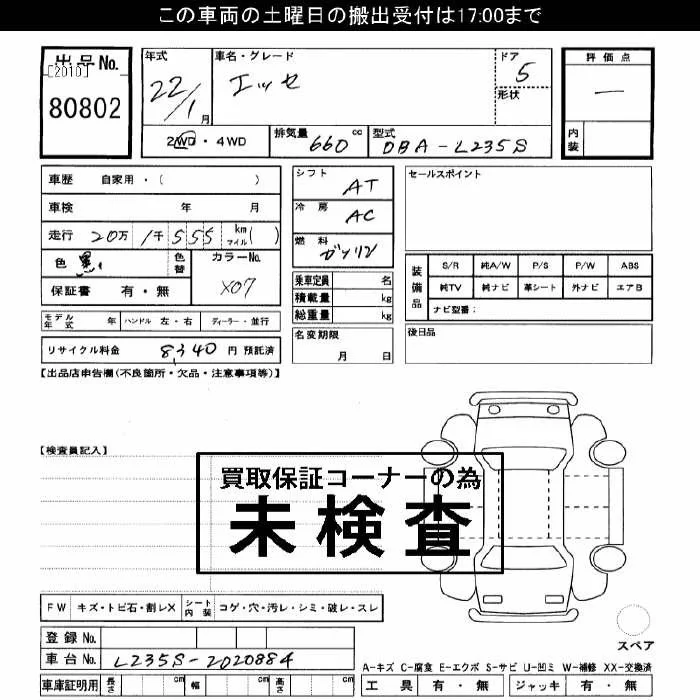 この車両の土曜日の搬出受付は17:00まで
出品No.
[2010]
80802
年式 22/1月
車名・グレード エッセ
ドア 5
形状
評価点 —
内装
2WD・4WD
排気量 660 cc
型式 DBA-L235S
車歴 自家用・( )
車検 年 月
走行 20万 1千 555 km マイル( )
色 黒
色替
カラーNo. X07
保証書 有・無
シフト AT
冷房 AC
燃料 ガソリン
乗車定員 名
積載量 kg
総重量 kg
名変期限 月 日
セールスポイント
装備品
S/R 純A/W P/S P/W ABS
純TV 純ナビ 革シート 外ナビ エアB
ナビ型番:
後日品
モデル年式 年 ハンドル 左・右 ディーラー・並行
リサイクル料金 8,340 円 預託済
【出品店申告欄(不良箇所・欠品・注意事項等)】
【検査員記入】
買取保証コーナーの為
未検査
FW キズ・トビ石・割レX シート内装 コゲ・穴・汚レ・シミ・破レ・スレ
登録No.
車台No. L235S-2020884
車庫証明用 長さ cm 幅 cm 高さ cm
スペア
A-キズ C-腐食 E-エクボ S-サビ U-凹ミ W-補修 XX-交換済
工具 有・無 ジャッキ 有・無